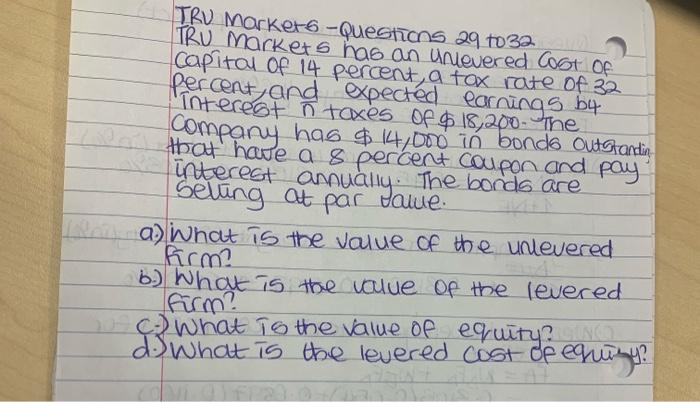 TRU Markets - Questions 29 to 32
TRU Markets has an unlevered cost of
capital of 14 percent, a tax rate of 32
percent, and expected earnings b4
interest n taxes of $18,200. The
company has $14,000 in bonds outstanding
that have a 8 percent coupon and pay
interest annually. The bonds are
selling at par value.
a.) What is the value of the unlevered
firm?
b.) What is the value of the levered
firm?
c.) What is the value of equity?
d.) What is the levered cost of equity?